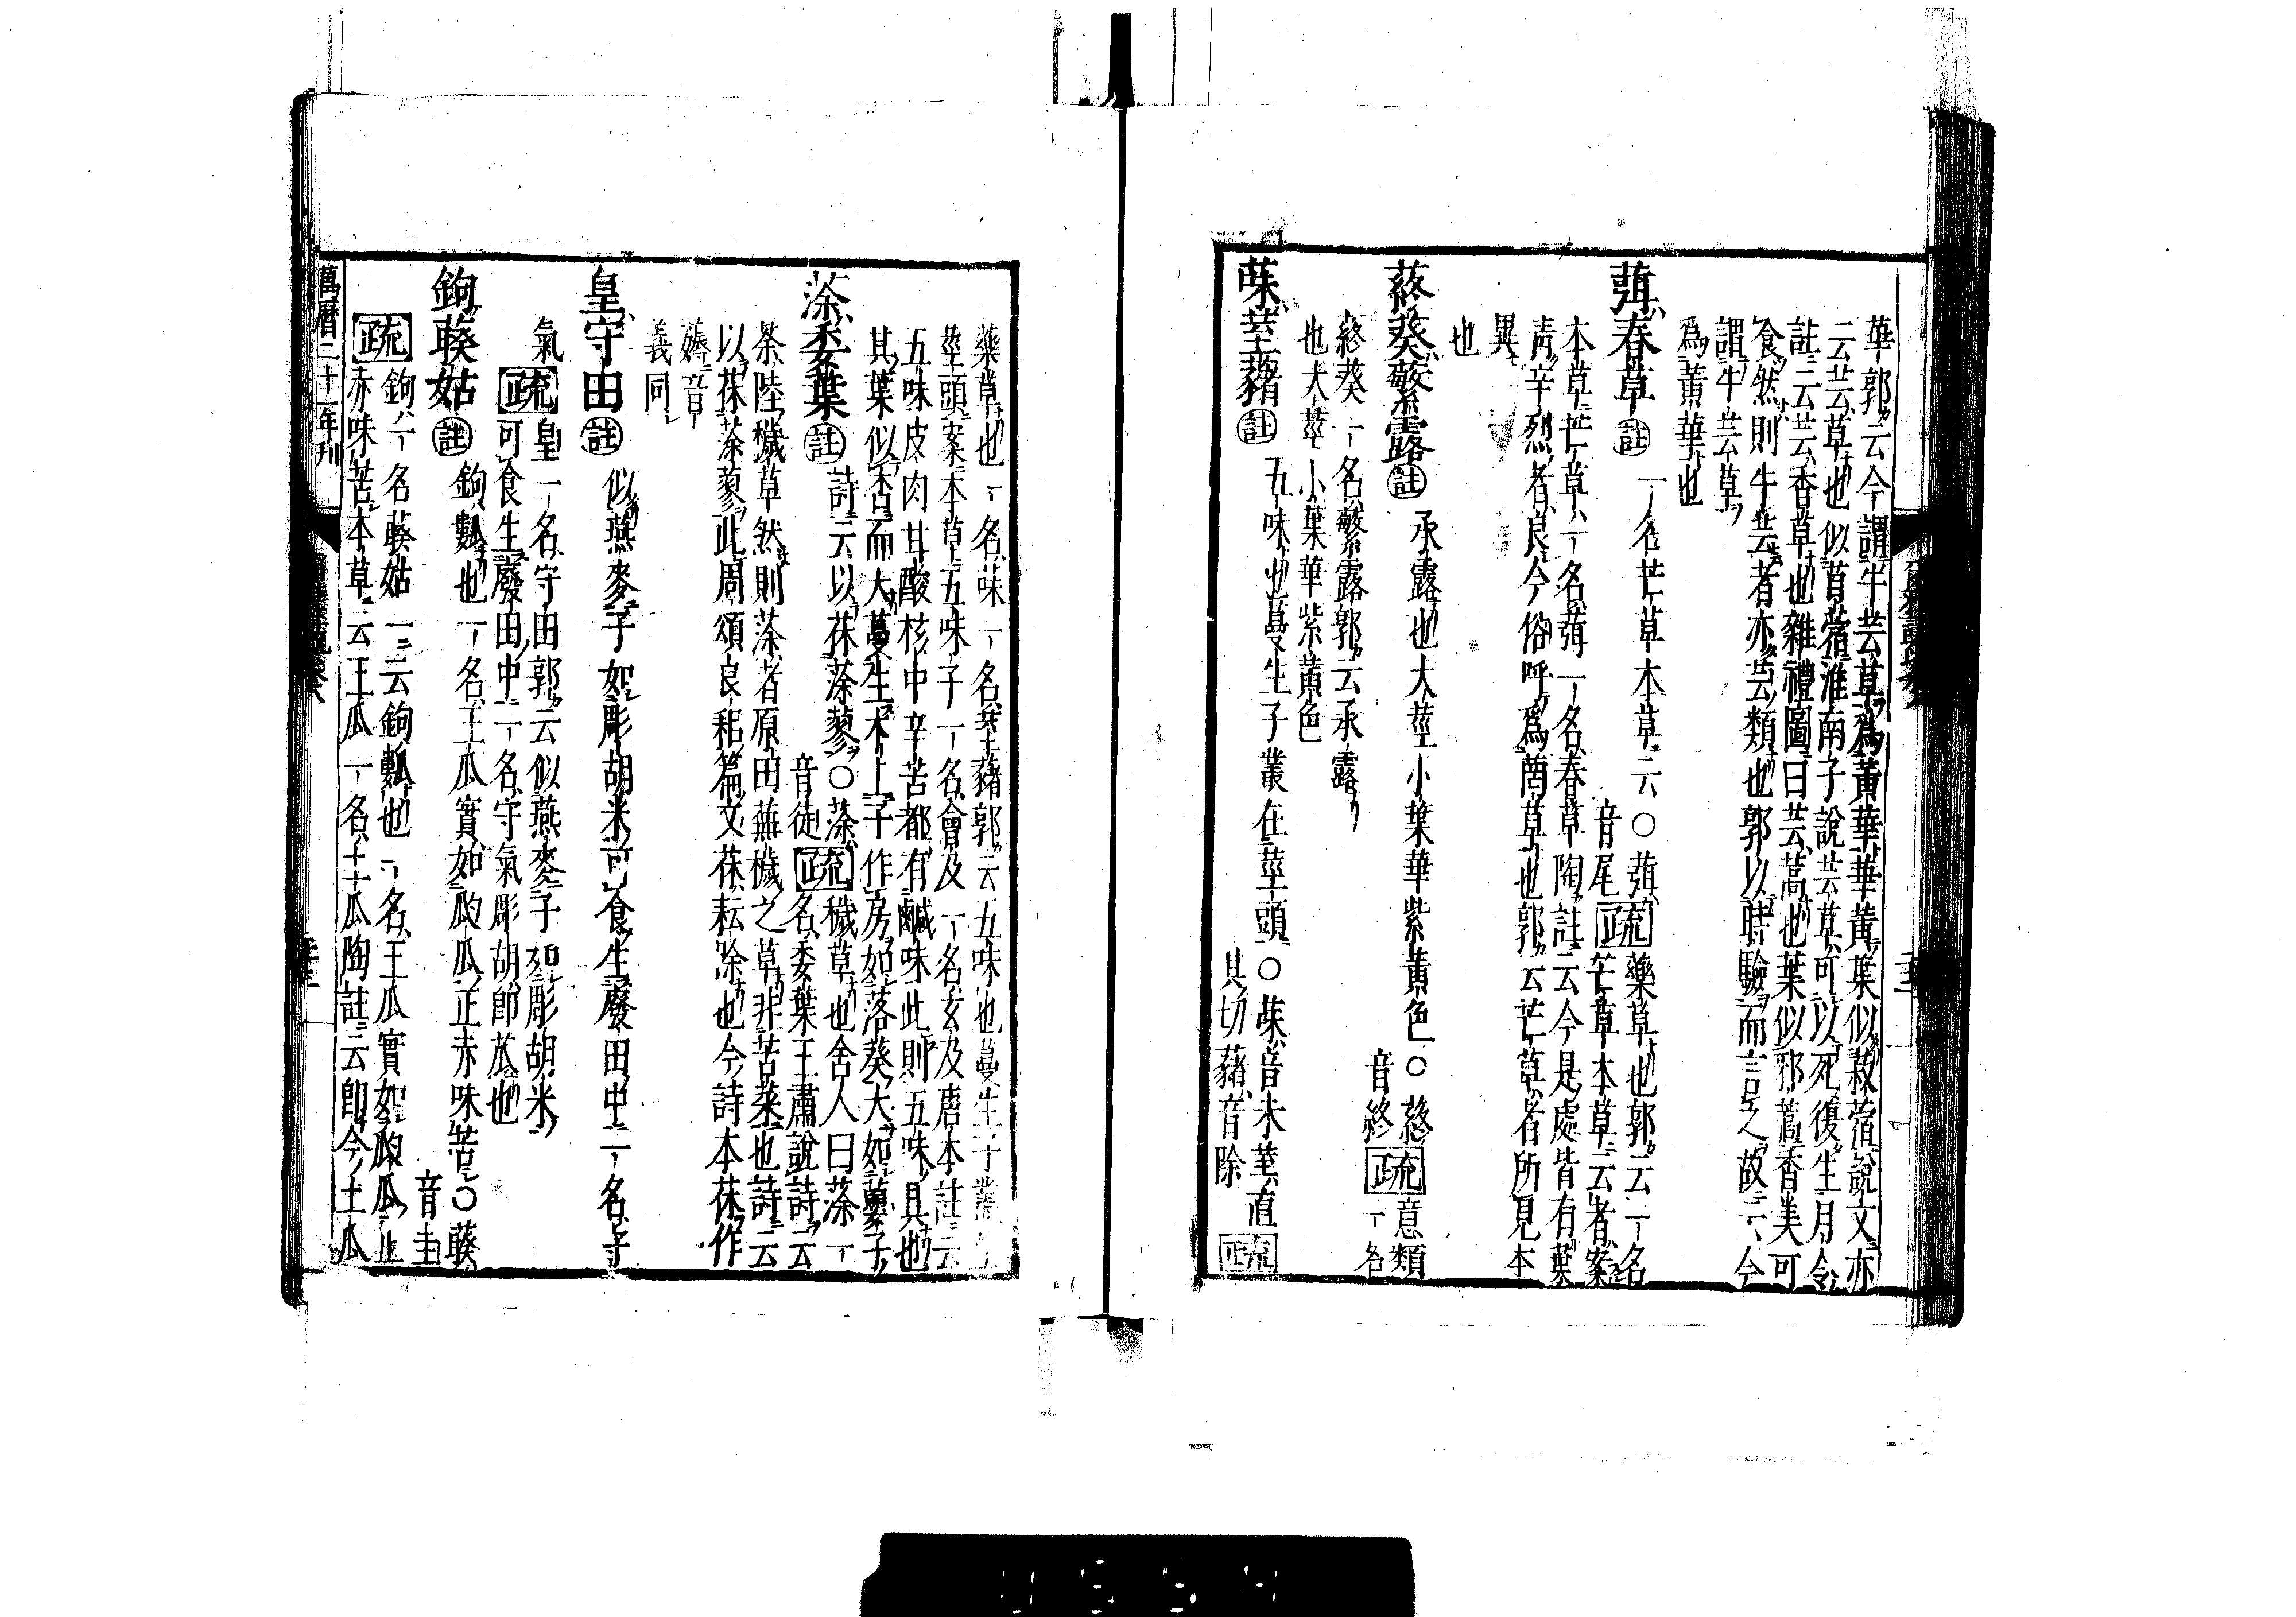 華郭云今謂牛芸草爲黃華華黃葉似荍蓿說文亦
云芸草也似苜蓿淮南子說芸草可以死復生月令
註云芸香草也雜禮圖曰芸蒿也葉似邪蒿香美可
食然則牛芸者亦芸類也郭以時驗而言之故云今
謂牛芸草
爲黃華也
葞春草註一名芒草本草云○葞
音尾疏藥草也郭云一名
芒草本草云者案
本草莽草一名葞一名春草陶註云今是處皆有葉
靑辛烈者良今俗呼爲䓪草也郭云芒草者所見本
異
也
蔠葵蘩露註承露也大莖小葉華紫黃色○蔠
音終疏意類
一名
終葵一名蘩露郭云承露
也大莖小葉華紫黃色
菋荎藸註五味也蔓生子叢在莖頭○菋音未荎直
其切藸音除疏
藥草也一名菋一名荎藸郭云五味也蔓生子叢在
莖頭案本草五味子一名會及一名玄及唐本註云
五味皮肉甘酸核中辛苦都有鹹味此則五味具也
其葉似杏而大蔓生木上子作房如落葵大如蘡子
蒤委葉註詩云以茠蒤蓼○蒤
音徒疏穢草也舍人曰蒤一
名委葉王肅說詩云
荼陸穢草然則蒤者原田蕪穢之草非苦菜也詩云
以茠蒤蓼此周頌良耜篇文茠耘除也今詩本茠作
薅音
義同
皇守田註似燕麥子如彫胡米可食生廢田中一名守
氣疏皇一名守田郭云似燕麥子如彫胡米
可食生廢田中一名守氣彫胡卽苽也
鉤藈姑註鉤瓤也一名王瓜實如瓝瓜正赤味苦○藈
音圭
疏鉤一名藈姑一云鉤瓤也一名王瓜實如瓝瓜正
赤味苦本草云王瓜一名土瓜陶註云卽今土瓜
萬曆二十一年刋